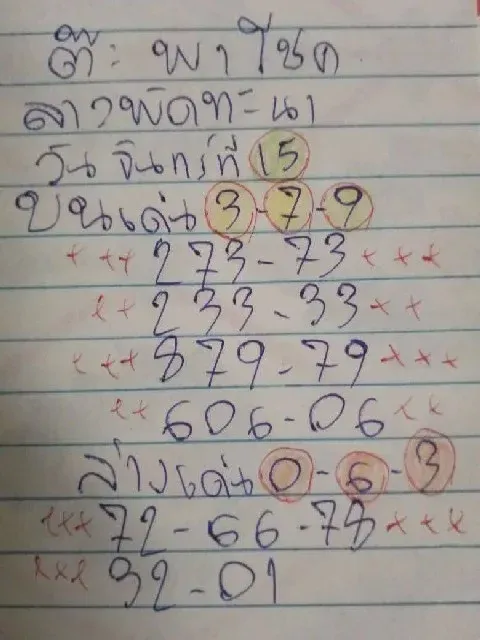 ต๊ะ พาโชค
ลาวพัดทะนา
วันจันทร์ที่ 15
บนเด่น 3-7-9
*** 273-73 ***
** 233-33 **
*** 879-79 ***
** 606-06 **
ล่างเด่น 0-6-3
*** 72-66-78 ***
*** 92-01